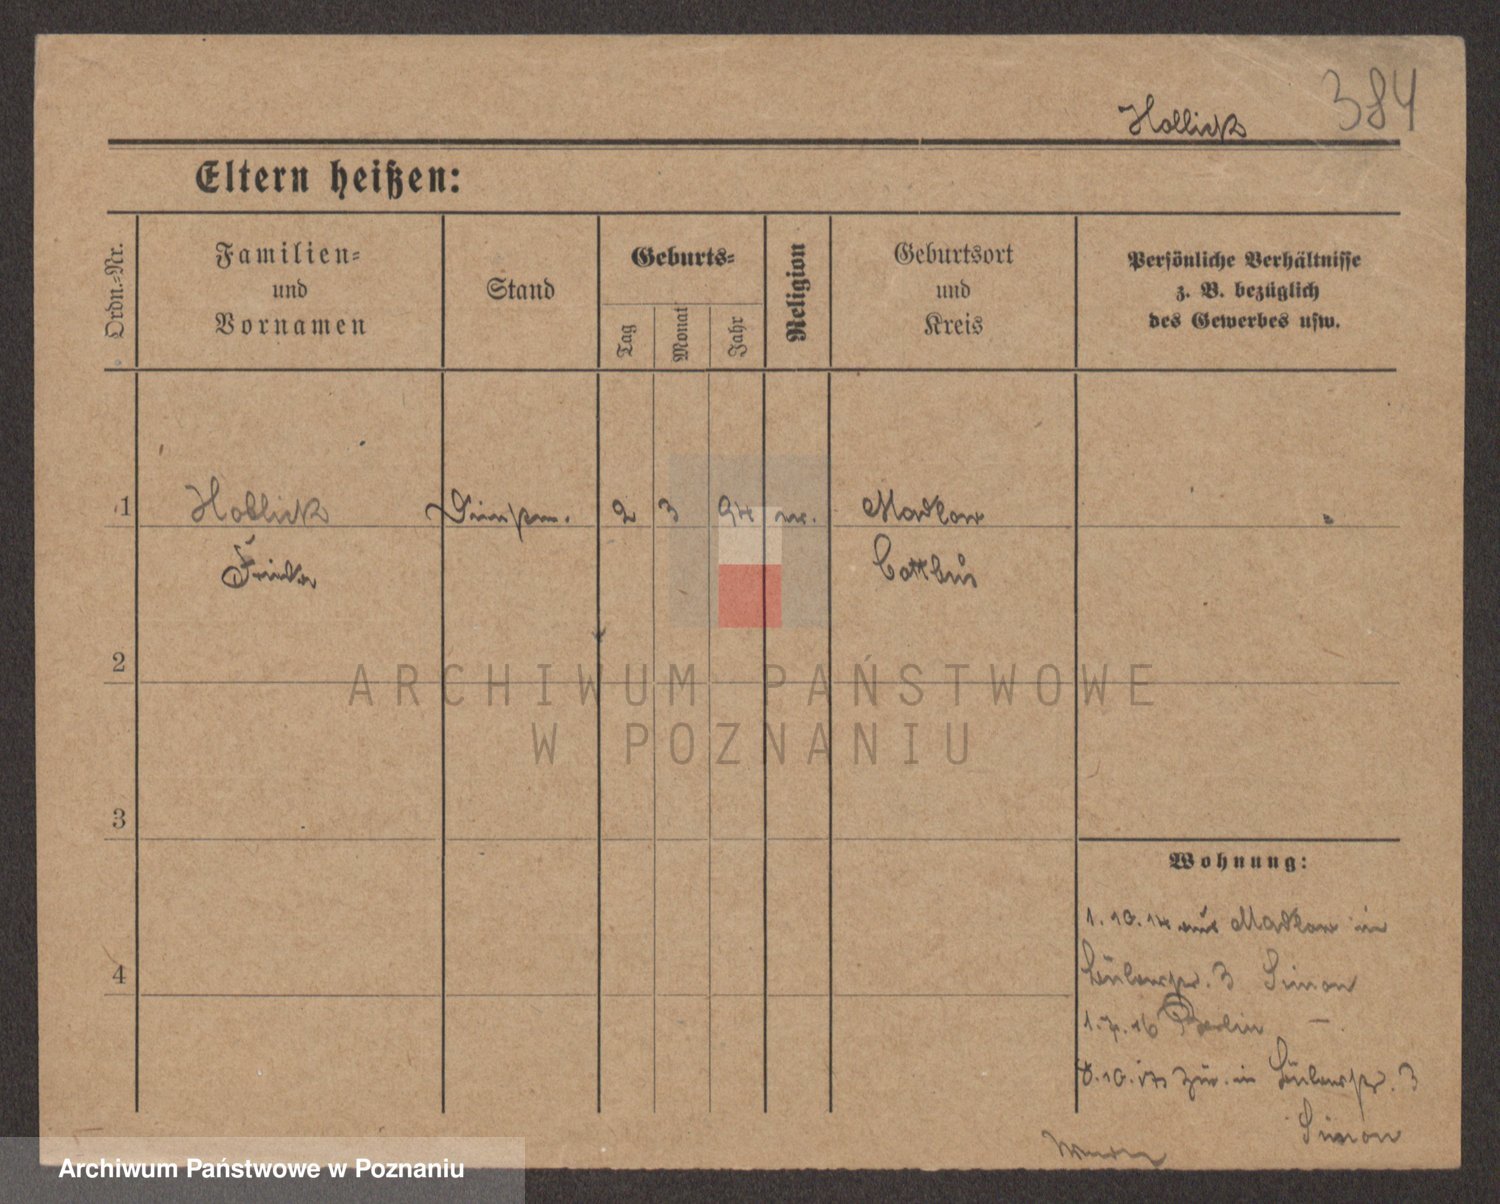 Hollick 384
Eltern heißen:
Ordn.=Nr.
Familien=
und
Vornamen
Stand
Geburts=
Tag
Monat
Jahr
Religion
Geburtsort
und
Kreis
Persönliche Verhältnisse
z. B. bezüglich
des Gewerbes usw.
1 Hollick 2 3 94 Madlow
Frieda Cottbus
2
3
4
Wohnung:
1. 10. 14 aus Madlow in
3 Simon
1. 7. 16 Berlin –
8. 10. zur. in 3
Simon
ARCHIWUM PAŃSTWOWE
W POZNANIU
Archiwum Państwowe w Poznaniu